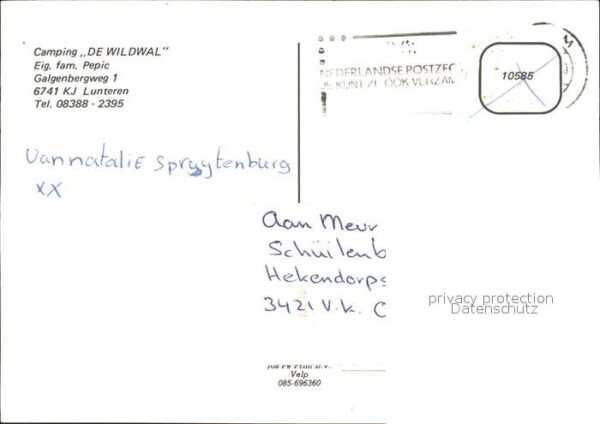 Camping „DE WILDWAL"
Eig. fam. Pepic
Galgenbergweg 1
6741 KJ Lunteren
Tel. 08388 - 2395
NEDERLANDSE POSTZEG
JE KUNT ZE OOK VERZAM
10585
Van natalie Spruytenburg
XX
Aan Meur
Schüilenb
Hekendorps
3421 V.k. C
privacy protection
Datenschutz
Velp
085-696360